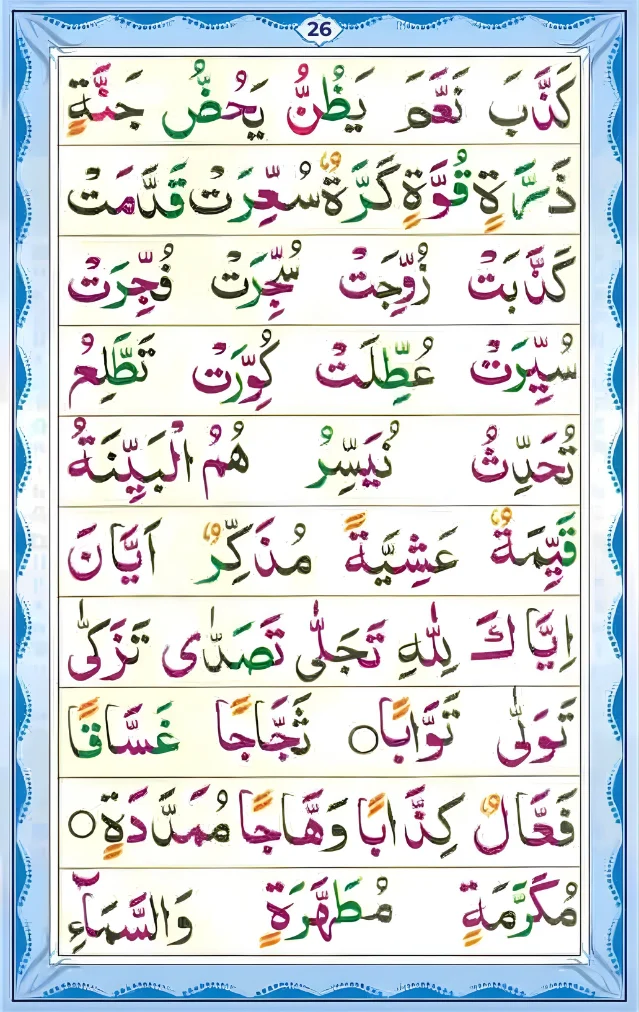 26
كَذَّبَ نَعَّمَ يَظُنُّ يَحُضُّ جَنَّةٍ
ذَرَّةٍ قُوَّةٍ كَرَّةٌ سُعِّرَتْ قَدَّمَتْ
كَذَّبَتْ زُوِّجَتْ سُجِّرَتْ فُجِّرَتْ
سُيِّرَتْ عُطِّلَتْ كُوِّرَتْ تَطَّلِعُ
تُحَدِّثُ نُيَسِّرُ هُمُ الْبَيِّنَةُ
قَيِّمَةٌ عَشِيَّةً مُذَكِّرٌ اَيَّانَ
اِيَّاكَ لِلّٰهِ تَجَلّٰى تَصَدّٰى تَزَكّٰى
تَوَلّٰى تَوَّابًا○ ثَجَّاجًا غَسَّاقًا
فَعَّالٌ كِذَّابًا وَهَّاجًا مُمَدَّدَةٍ○
مُكَرَّمَةٍ مُطَهَّرَةٍ وَالسَّمَآءِ